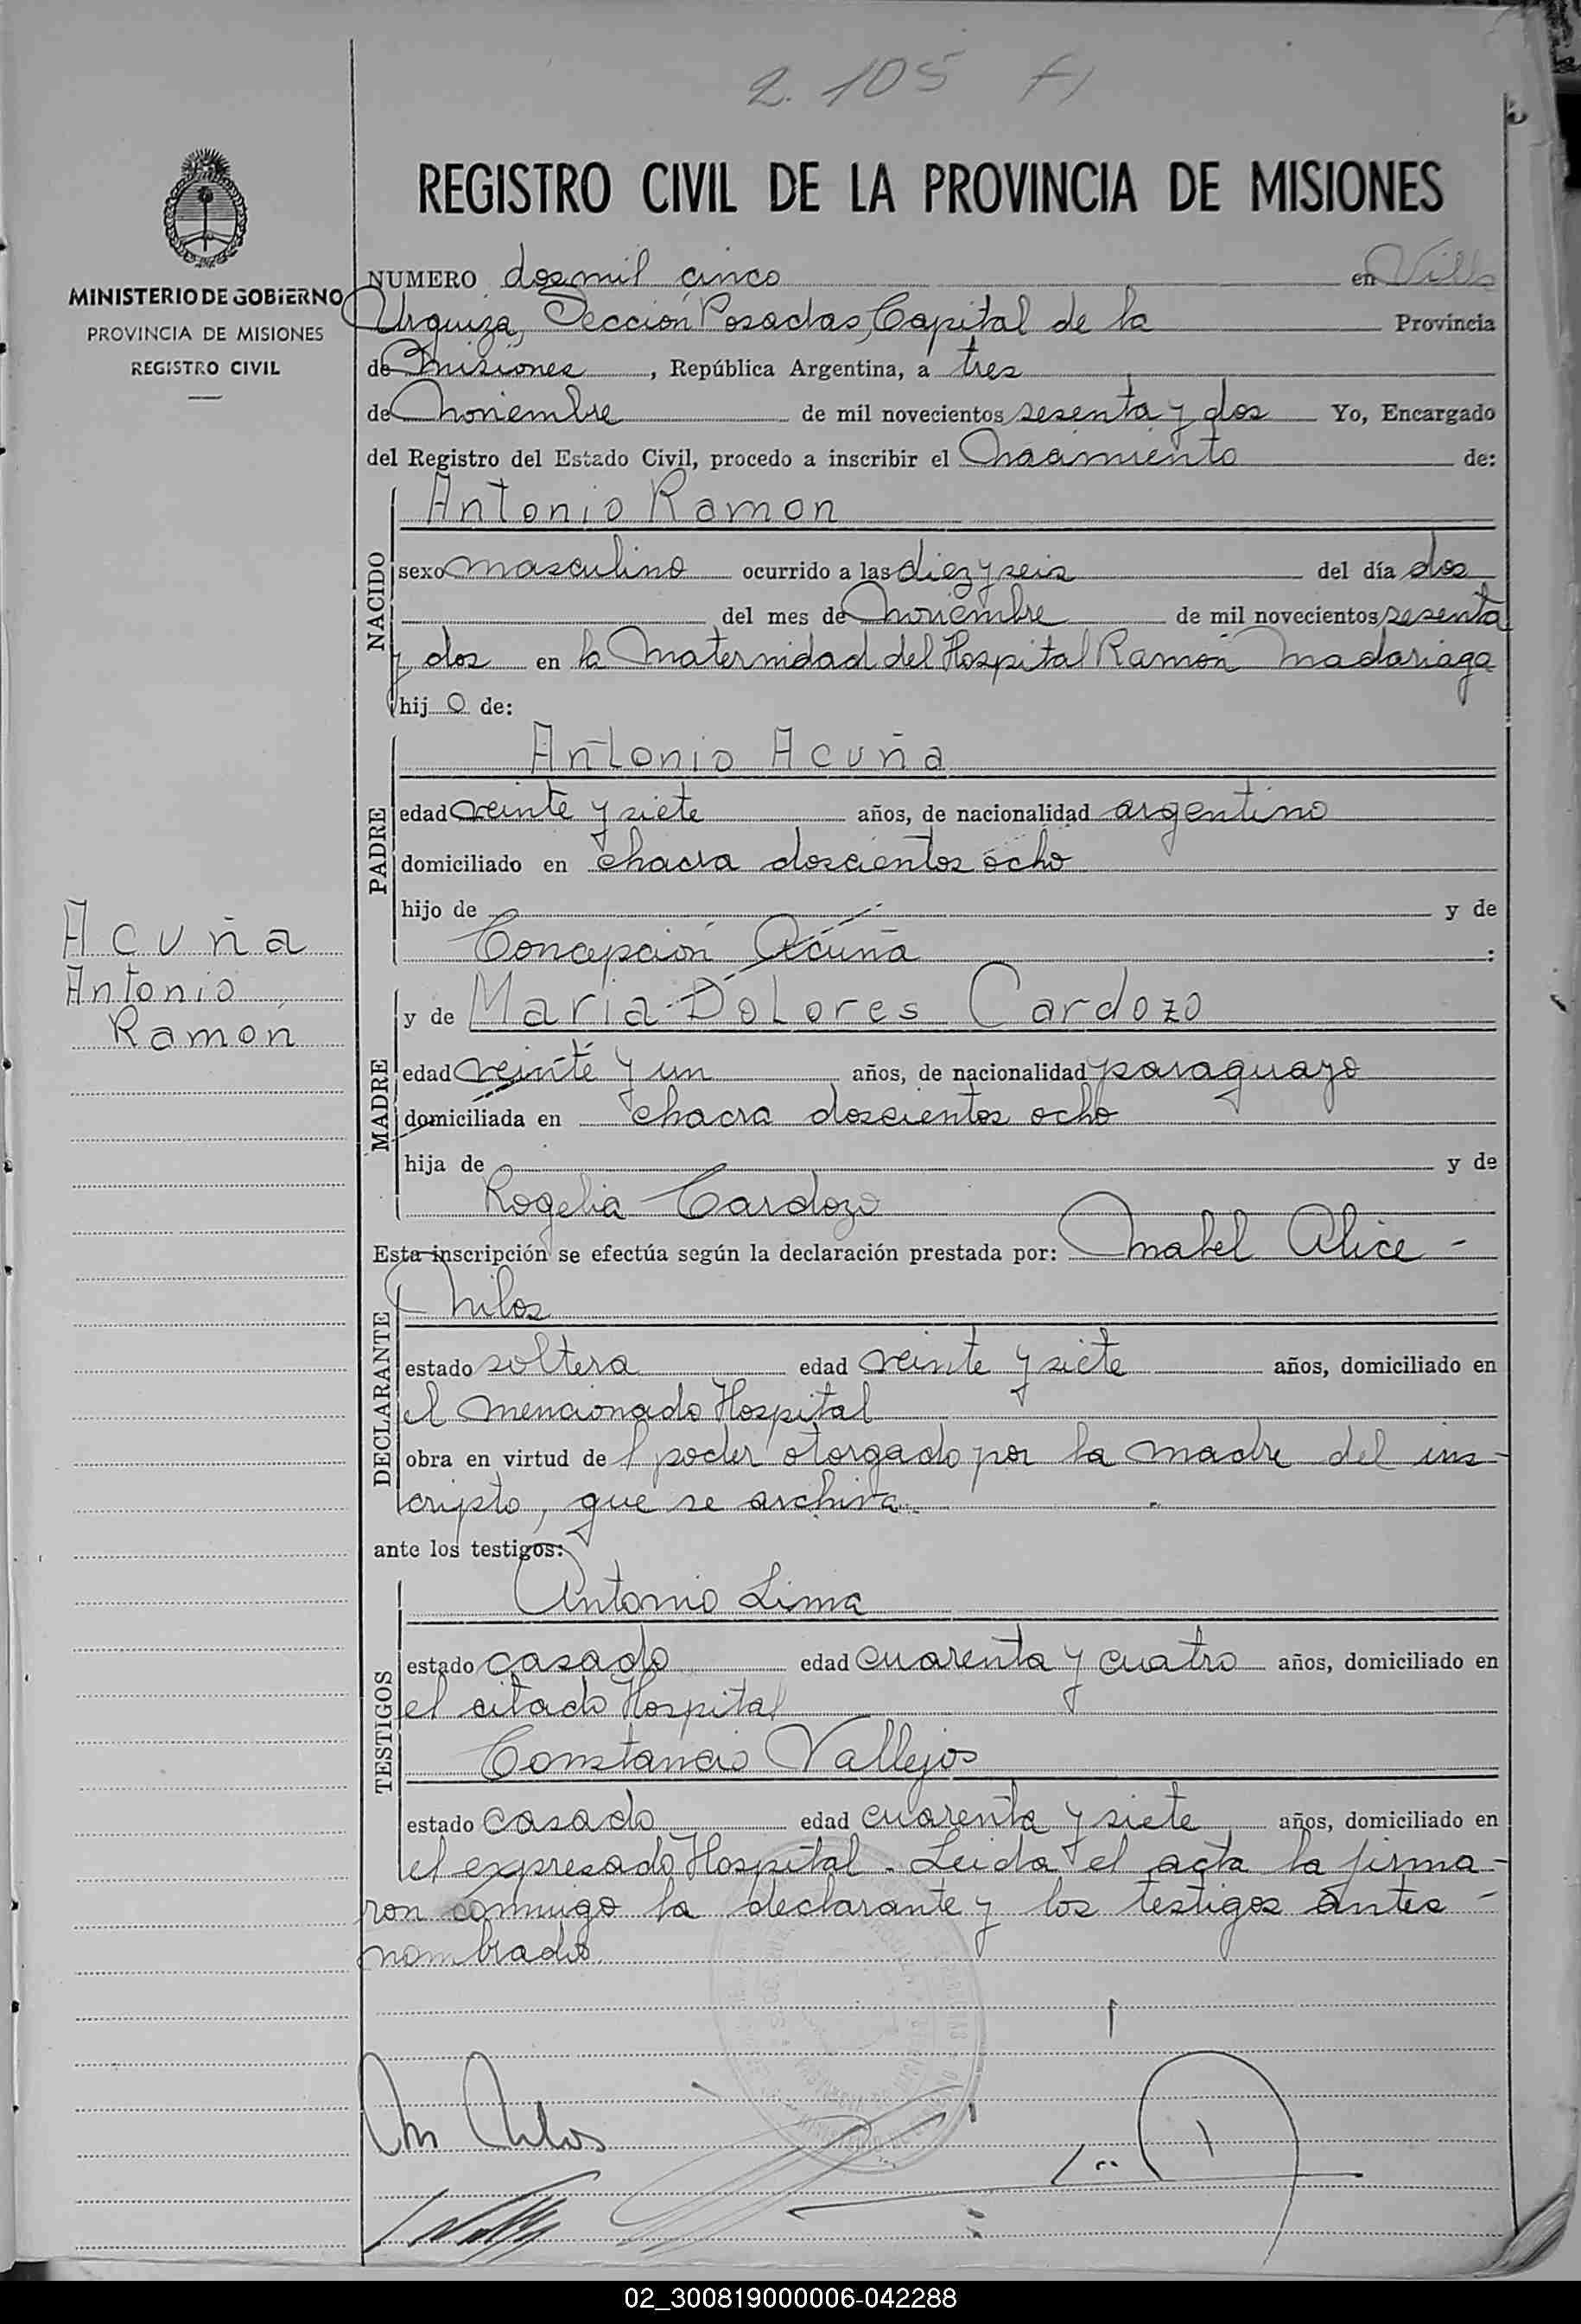 2.105
REGISTRO CIVIL DE LA PROVINCIA DE MISIONES
MINISTERIO DE GOBIERNO
PROVINCIA DE MISIONES
REGISTRO CIVIL
NUMERO dosmil cinco en Villa
Urquiza, Sección Posadas, Capital de la Provincia
de Misiones, República Argentina, a tres
de Noviembre de mil novecientos sesenta y dos Yo, Encargado
del Registro del Estado Civil, procedo a inscribir el Nacimiento de:
NACIDO
Antonio Ramon
sexo masculino ocurrido a las diez y seis del día dos
del mes de Noviembre de mil novecientos sesenta
y dos en la Maternidad del Hospital Ramón Madariaga
hij o de:
PADRE
Antonio Acuña
edad veinte y siete años, de nacionalidad argentino
domiciliado en chacra doscientos ocho
hijo de y de
Concepción Acuña :
Acuña
Antonio
Ramón
MADRE
y de Maria Dolores Cardozo
edad veinte y un años, de nacionalidad paraguayo
domiciliada en chacra doscientos ocho
hija de y de
Rogelia Cardozo
Esta inscripción se efectúa según la declaración prestada por: Mabel Alice -
DECLARANTE
Milos
estado soltera edad veinte y siete años, domiciliado en
el mencionado Hospital
obra en virtud de l poder otorgado por la madre del ins-
cripto, que se archiva.
ante los testigos:
TESTIGOS
Antonio Lima
estado casado edad cuarenta y cuatro años, domiciliado en
el citado Hospital
Constancio Vallejos
estado casado edad cuarenta y siete años, domiciliado en
el expresado Hospital. Leida el acta la firma-
ron conmigo la declarante y los testigos antes -
nombrados.
02_300819000006-042288